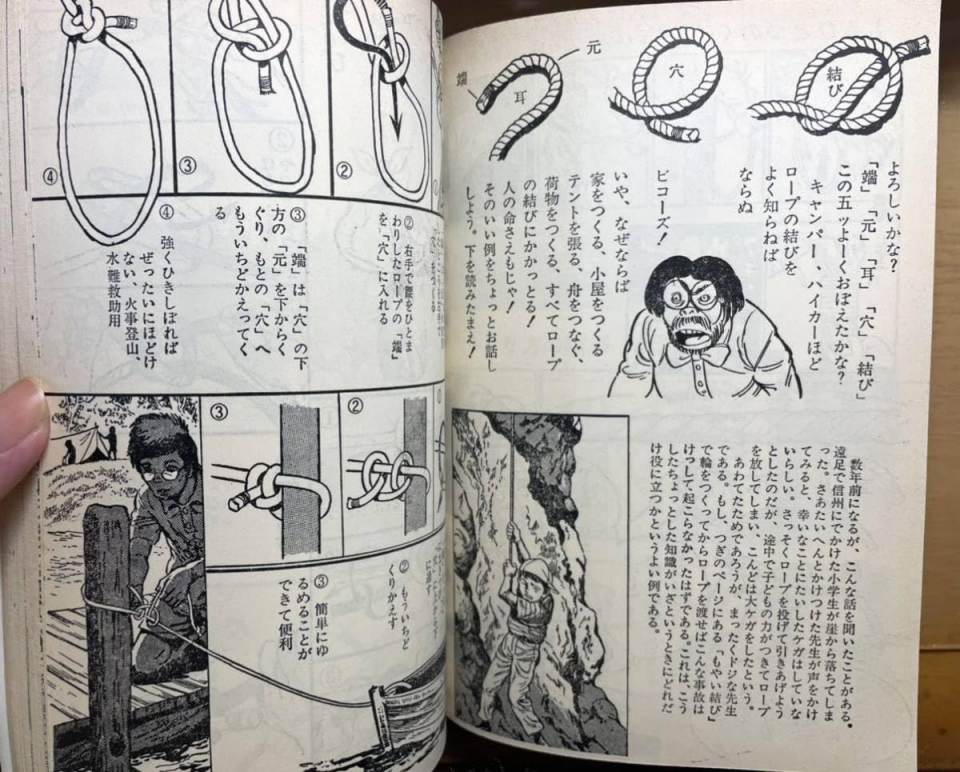 元
端
耳
穴
結び
よろしいかな?
「端」「元」「耳」「穴」「結び」
この五ッよーくおぼえたかな?
キャンパー、ハイカーほど
ロープの結びを
よく知らねば
ならぬ
ビコーズ!
いや、なぜならば
家をつくる、小屋をつくる
テントを張る、舟をつなぐ、
荷物をつくる、すべてロープ
の結びにかかっとる!
人の命さえもじゃ!
そのいい例をちょっとお話し
しよう。下を読みたまえ!
数年前になるが、こんな話を聞いたことがある。
遠足で信州にでかけた小学生が崖から落ちてしま
った。さあたいへんとかけつけた先生が声をかけ
てみると、幸いなことにたいしたケガはしていな
いらしい。さっそくロープを投げて引きあげよう
としたのだが、途中で子どもの力がつきてロープ
を放してしまい、こんどは大ケガをしたという。
あわてたためであろうが、まったくドジな先生
である。もし、つぎのページにある「もやい結び」
で輪をつくってからロープを渡せばこんな事故は
けっして起こらなかったはずである。これは、こう
したちょっとした知識がいざというときにどれだ
け役に立つかというよい例である。
②
③
④
② 右手で腰をひとま
わりしたロープの「端」
を「穴」に入れる
③ 「端」は「穴」の下
方の「元」を下からく
ぐり、もとの「穴」へ
もういちどかえってく
る
④ 強くひきしぼれば
ぜったいにほどけ
ない、火事登山、
水難救助用
②
③
② もういちど
くりかえす
③ 簡単にゆ
るめることが
できて便利